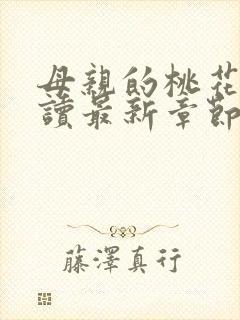 母親的桃花
讀最新章節
藤澤真行